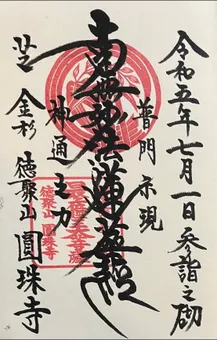 令和五年七月一日参詣之砌
普門示現
南無妙法蓮華経
神通主力
芝金杉
徳聚山圓珠寺
徳聚山
圓珠寺